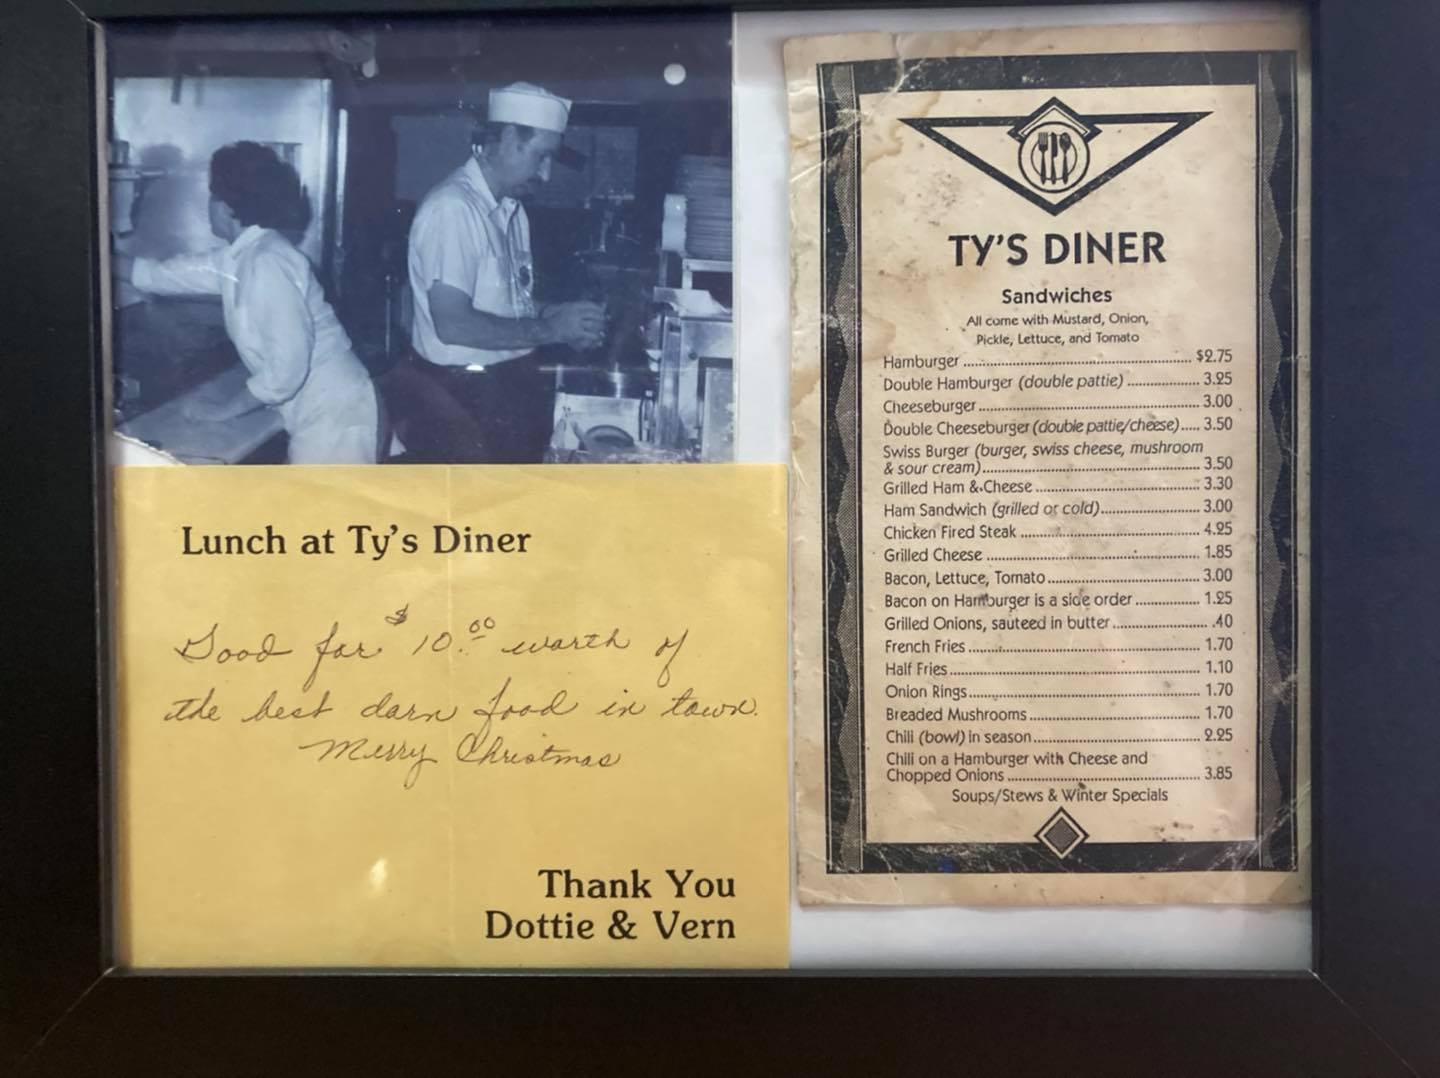 Lunch at Ty's Diner
Good for $10.00 worth of
the best darn food in town.
Merry Christmas
Thank You
Dottie & Vern
TY'S DINER
Sandwiches
All come with Mustard, Onion,
Pickle, Lettuce, and Tomato
Hamburger ........ $2.75
Double Hamburger (double pattie) ........ 3.25
Cheeseburger ........ 3.00
Double Cheeseburger (double pattie/cheese)..... 3.50
Swiss Burger (burger, swiss cheese, mushroom
& sour cream) ........ 3.50
Grilled Ham & Cheese ........ 3.30
Ham Sandwich (grilled or cold) ........ 3.00
Chicken Fired Steak ........ 4.25
Grilled Cheese ........ 1.85
Bacon, Lettuce, Tomato ........ 3.00
Bacon on Hamburger is a side order ........ 1.25
Grilled Onions, sauteed in butter ........ .40
French Fries ........ 1.70
Half Fries ........ 1.10
Onion Rings ........ 1.70
Breaded Mushrooms ........ 1.70
Chili (bowl) in season ........ 2.25
Chili on a Hamburger with Cheese and
Chopped Onions ........ 3.85
Soups/Stews & Winter Specials